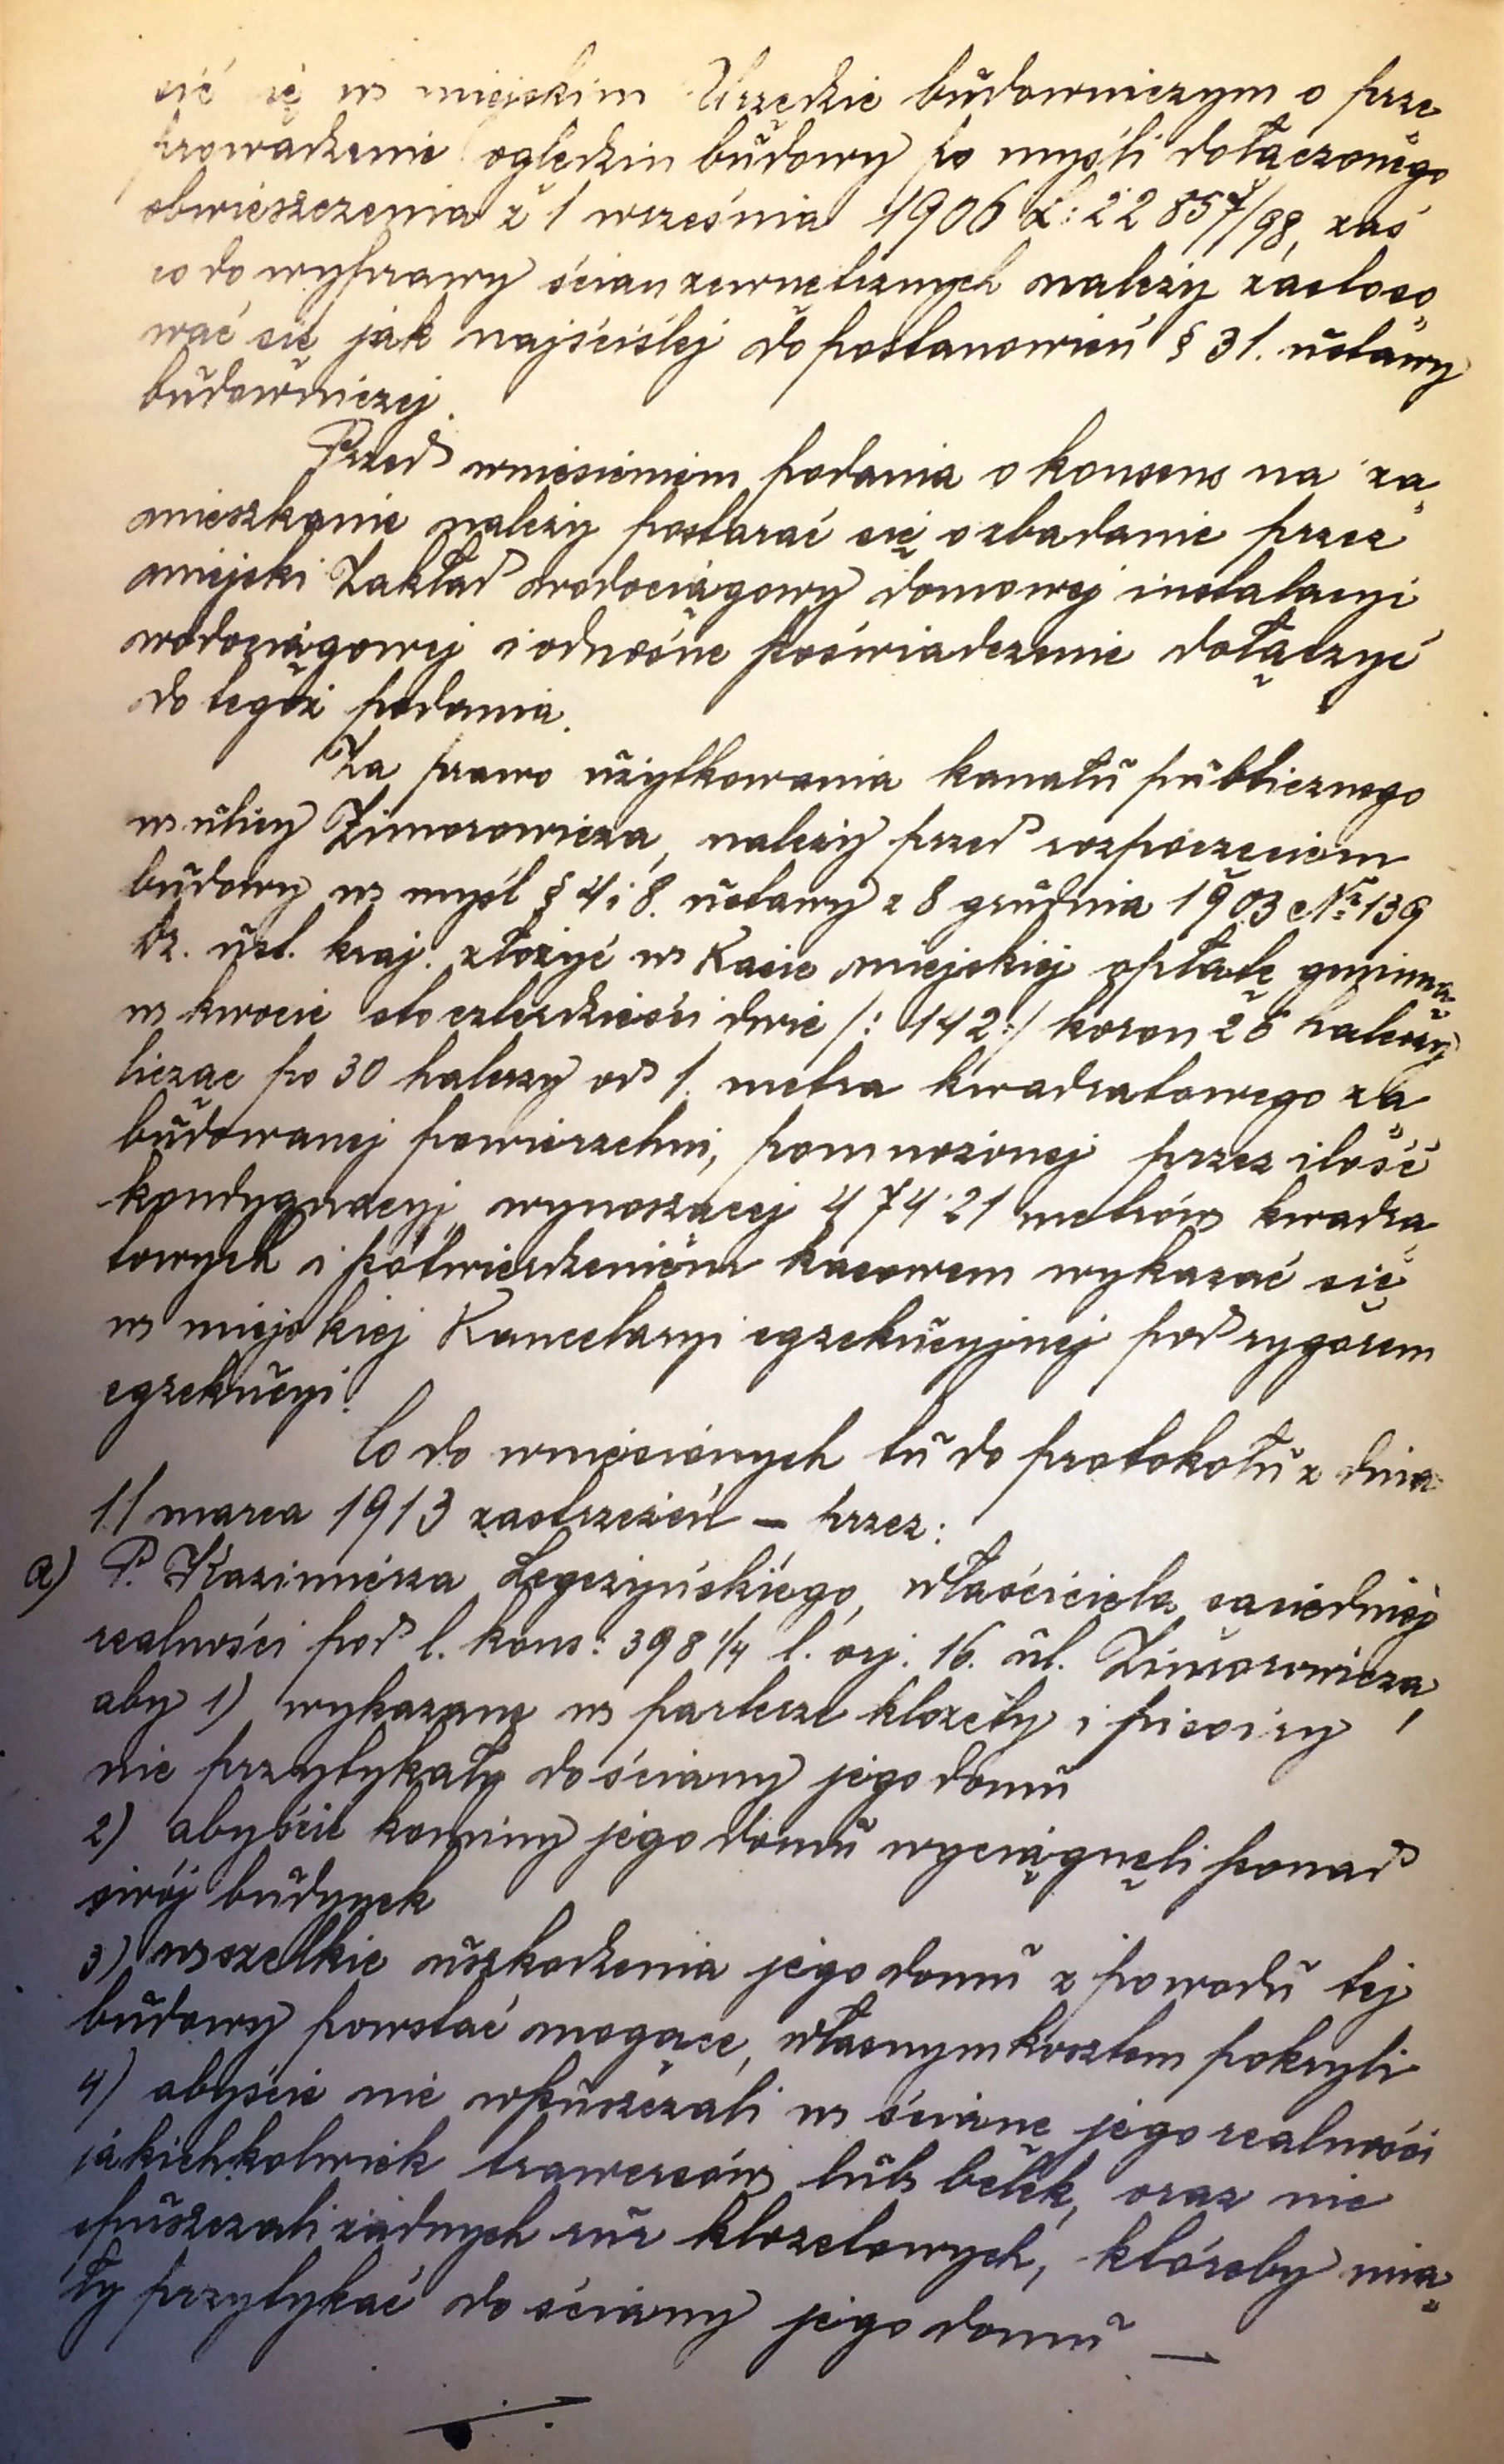 sić się w miejskim Urzędzie budowniczym o prze„
prowadzenie oględzin budowy po myśli dołączonego
obwieszczenia z 1 września 1906 L: 22857/98, zaś
co do wyprawy ścian zewnetrznych należy zastoso„
wać się jak najściślej do postanowień § 31. ustawy
budowniczej.
Przed wniesieniem podania o konsens na za„
mieszkanie należy postarać się o zbadanie przez
miejski Zakład wodociągowy domowej instalacyi
wodociągowej i odnośne poświadczenie dołączyć
do tegoż podania.
Za prawo użytkowania kanału publicznego
w ulicy Zimorowicza, należy przed rozpoczęciem
budowy w myśl § 4 i 8. ustawy z 8 grudnia 1903 Nr. 139
Dz. ust. kraj. złożyć w Kasie miejskiej opłatę gminną
w kwocie sto czterdzieści dwie /: 142 :/ koron 26 halerzy
licząc po 30 halerzy od 1. metra kwadratowego za„
budowanej powierzchni, pomnożonej przez ilość
kondygnacyj wynoszącej 474.21 metrów kwadra„
towych i potwierdzeniem kasowem wykazać się
w miejskiej Kancelaryi egzekucyjnej pod rygorem
egzekucyi.
Co do wniesionych tu do protokołu z dnia
11 marca 1913 zastrzeżeń – przez:
a) P. Kazimierza Legeżyńskiego, właściciela sąsiedniej
realności pod l. kons: 398 1/4 l. orj. 16. ul. Zimorowicza,
aby 1) wykazane w parterze klozety i pisoiry
nie przytykały do ściany jego domu
2) abyście kominy jego domu wyciągnęli ponad
swój budynek
3) wszelkie uszkodzenia jego domu z powodu tej
budowy powstać mogące, własnym kosztem pokryli
4) abyście nie wpuszczali w ścianę jego realności
jakichkolwiek trawersów lub belek, oraz nie
spuszczali żadnych rur klozetowych, któreby mia„
ły przytykać do ściany jego domu —